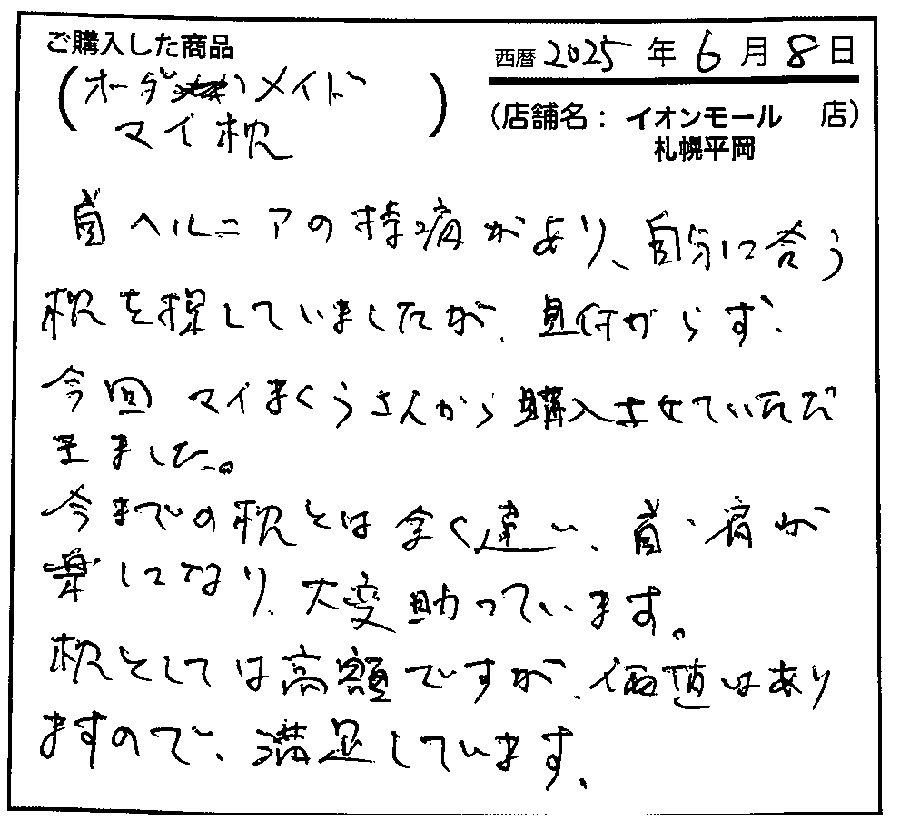 ご購入した商品
西暦 2025 年 6 月 8 日
(オーダーメイド
マイ枕)
(店舗名： イオンモール 店)
札幌平岡
首ヘルニアの持病があり、自分に合う
枕を探していましたが、見付からず、
今回 マイまくらさんから購入させていただ
きました。
今までの枕とは全く違い、首・肩が
楽してなり、大変助っています。
枕としては高額ですが、価値はあり
ますので、満足しています。